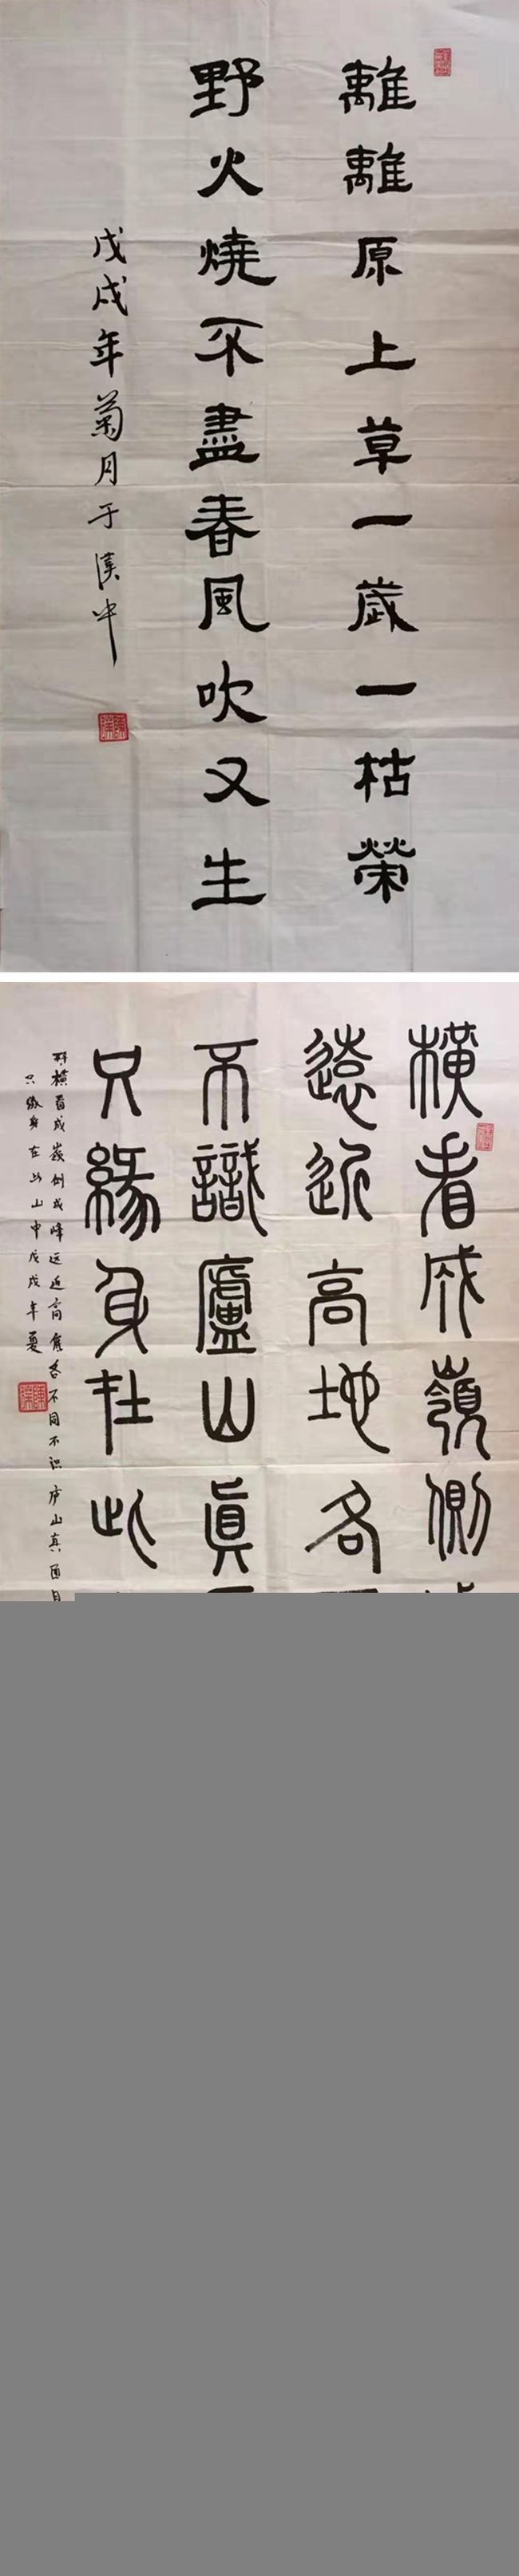 離離原上草一歲一枯榮
野火燒不盡春風吹又生
戊戌年菊月于漢中
橫看成嶺側
遠近高地各
不識廬山眞
只緣身在此
橫看成岭侧成峰远近高低各不同不识庐山真面目
只缘身在此山中戊戌年夏